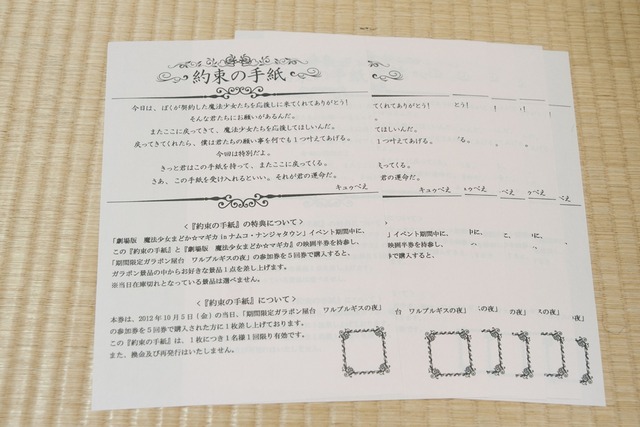 約束の手紙
今日は、ぼくが契約した魔法少女たちを応援しに来てくれてありがとう！
そんな君たちにお願いがあるんだ。
またここに戻ってきて、魔法少女たちを応援してほしいんだ。
戻ってきてくれたら、僕は君たちの願い事を何でも1つ叶えてあげる。
今回は特別だよ。
きっと君はこの手紙を持って、またここに戻ってくる。
さあ、この手紙を受け入れるといい。それが君の運命だ。
キュゥべえ
＜『約束の手紙』の特典について＞
「劇場版　魔法少女まどか☆マギカ in ナムコ・ナンジャタウン」イベント期間中に、
この『約束の手紙』と『劇場版　魔法少女まどか☆マギカ』の映画半券を持参し、
「期間限定ガラポン屋台　ワルプルギスの夜」の参加券を5回券で購入すると、
ガラポン景品の中からお好きな景品1点を差し上げます。
※当日在庫切れとなっている景品は選べません。
＜『約束の手紙』について＞
本券は、2012年10月5日（金）の当日、「期間限定ガラポン屋台　ワルプルギスの夜」
の参加券を5回券で購入された方に1枚差し上げております。
この『約束の手紙』は、1枚につき1名様1回限り有効です。
また、換金及び再発行はいたしません。
てくれてありがとう！
。
てほしいんだ。
1つ叶えてあげる。
戻ってくる。
君の運命だ。
キュゥべえ
」イベント期間中に、
映画半券を持参し、
券で購入すると、
台　ワルプルギスの夜」
とう！
る。
ゥべえ
中に、
し、
スの夜」
べえ
の夜」
べえ
の夜」